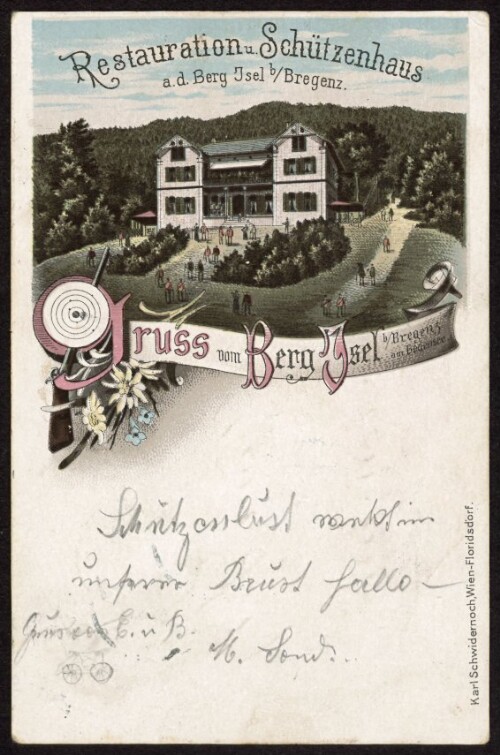 Restauration u. Schützenhaus
a. d. Berg Isel b/Bregenz.
Gruss vom Berg Isel b/Bregenz
am Bodensee
Schützenlust
unserer Brust hallo –
E. u. B.
M.
Karl Schwidernoch, Wien-Floridsdorf.